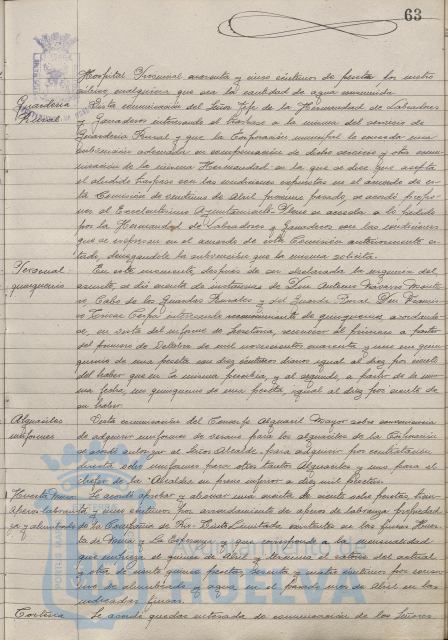 63
Hospital Provincial cuarenta y cinco céntimos de peseta los metros
cúbicos cualquiera que sea la cantidad de agua consumida.
Guardería Vista comunicación del Señor Jefe de la Hermandad de Labradores
Rural. y Ganaderos interesando el traspaso a la misma del servicio de
Guardería Rural y que la Corporación municipal le conceda una
subvención adecuada en compensación de dicho servicio y otra comu-
nicación de la misma Hermandad en la que se dice que acepta
el aludido traspaso con las condiciones expuestas en el acuerdo de es-
ta Comisión de veintiuno de Abril próximo pasado, se acordó propo-
ner al Excelentísimo Ayuntamiento Pleno se acceda a lo pedido
por la Hermandad de Labradores y Ganaderos con las condiciones
que se expresan en el acuerdo de esta Comisión anteriormente ci-
tado, denegándole la subvención que la misma solicita.
Personal En este momento, después de ser declarada la urgencia del
quinquenio asunto, se dió cuenta de instancias de Don Antonio Navarro
Cabo de los Guardas Rurales y del Guarda Rural Don
interesando reconocimiento de quinquenios, acordándo-
se, en vista del informe de Secretaría, reconocer al primero a partir
del primero de de mil novecientos cuarenta y uno un quin-
quenio de una peseta con diez céntimos diarios igual al diez por ciento
del haber que en la misma percibía, y al segundo, a partir de la mis-
ma fecha, un quinquenio de una peseta, igual al diez por ciento de
su haber.
Alguaciles Vista comunicación del Conserje Alguacil Mayor sobre conveniencia
uniformes de adquirir uniformes de verano para los alguaciles de la Corporación
se acordó autorizar al Señor Alcalde para adquirir por contratación
directa seis uniformes para otros tantos Alguaciles y uno para el
chófer de la Alcaldía en precio inferior a diez mil pesetas.
Huerta Mena Se acordó aprobar y abonar una cuenta de ciento ocho pesetas
Aperos labranza y cinco céntimos por arrendamiento de aperos de labranza propiedad
y alumbrado de la Compañía de Rio-Tinto Limitada existentes en las fincas Huer-
ta de Mena y La Esperanza y que corresponde a la mensualidad
que empieza el quince de Abril y termina el catorce del actual
y otra de veinte quince pesetas, sesenta y cuatro céntimos por consu-
mo de alumbrado y agua en el pasado mes de Abril en las
indicadas fincas.
Cortesía Se acordó quedar enterada de comunicación de los Señores